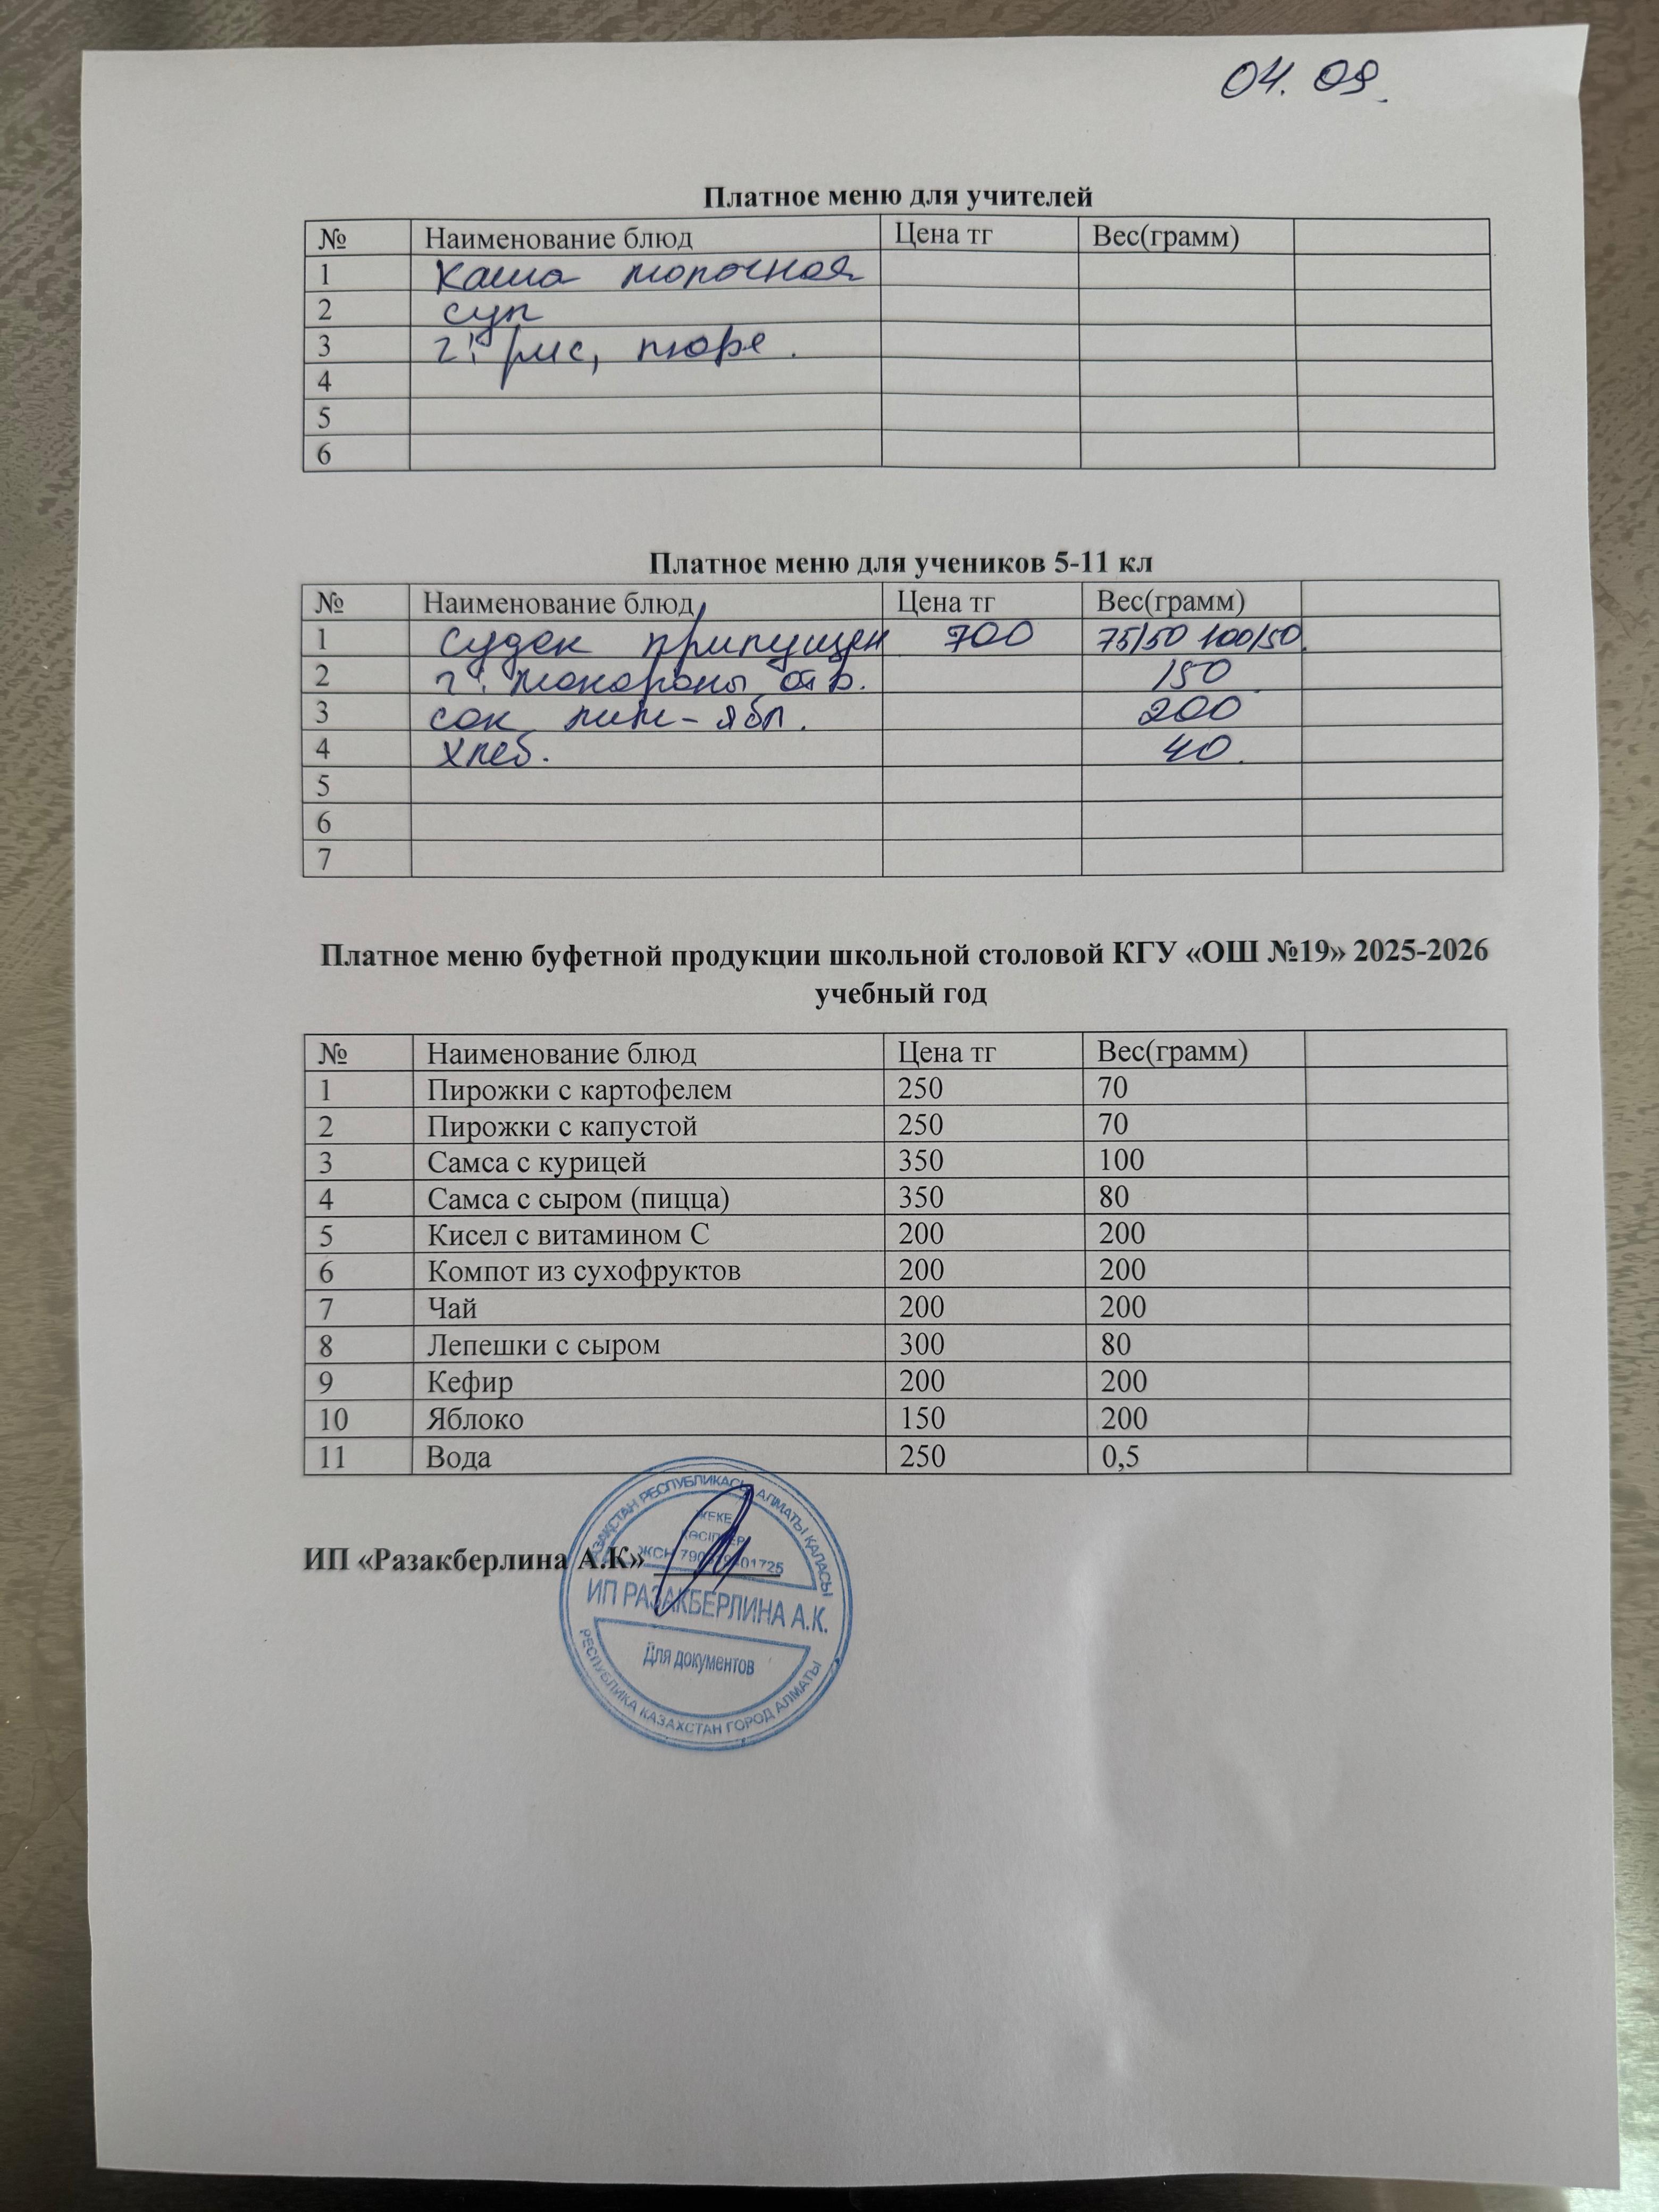 04. 09.
Платное меню для учителей
№ Наименование блюд Цена тг Вес(грамм)
1 Каша молочная
2 суп
3 г: рис, пюре.
4
5
6
Платное меню для учеников 5-11 кл
№ Наименование блюд Цена тг Вес(грамм)
1 Судак припущен 700 75/50 100/50.
2 г: макароны отв. 150.
3 сок лим-ябл. 200
4 хлеб. 40.
5
6
7
Платное меню буфетной продукции школьной столовой КГУ «ОШ №19» 2025-2026
учебный год
№ Наименование блюд Цена тг Вес(грамм)
1 Пирожки с картофелем 250 70
2 Пирожки с капустой 250 70
3 Самса с курицей 350 100
4 Самса с сыром (пицца) 350 80
5 Кисел с витамином С 200 200
6 Компот из сухофруктов 200 200
7 Чай 200 200
8 Лепешки с сыром 300 80
9 Кефир 200 200
10 Яблоко 150 200
11 Вода 250 0,5
ИП «Разакберлина А.К»
ҚАЗАҚСТАН РЕСПУБЛИКАСЫ АЛМАТЫ ҚАЛАСЫ
ЖЕКЕ
КӘСІПКЕР
ЖСН
ИП РАЗАКБЕРЛИНА А.К.
Для документов
РЕСПУБЛИКА КАЗАХСТАН ГОРОД АЛМАТЫ